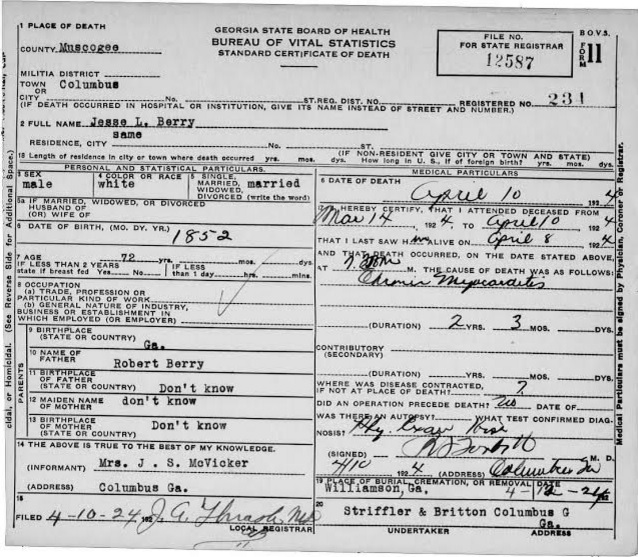 1 PLACE OF DEATH
COUNTY Muscogee
MILITIA DISTRICT
TOWN Columbus
OR
CITY No. ST. REG. DIST. NO. REGISTERED NO. 234
(IF DEATH OCCURRED IN HOSPITAL OR INSTITUTION, GIVE ITS NAME INSTEAD OF STREET AND NUMBER.)
GEORGIA STATE BOARD OF HEALTH
BUREAU OF VITAL STATISTICS
STANDARD CERTIFICATE OF DEATH
FILE NO.
FOR STATE REGISTRAR
12587
B.O.V.S.
FORM 11
2 FULL NAME Jesse L. Berry
same
RESIDENCE, CITY No. ST.
(IF NON-RESIDENT GIVE CITY OR TOWN AND STATE)
Length of residence in city or town where death occurred yrs. mos. dys. How long in U. S., if of foreign birth? yrs. mos. dys.
PERSONAL AND STATISTICAL PARTICULARS.
3 SEX
male
4 COLOR OR RACE
white
5 SINGLE,
MARRIED, married
WIDOWED,
DIVORCED (write the word)
5a IF MARRIED, WIDOWED, OR DIVORCED
HUSBAND OF
(OR) WIFE OF
6 DATE OF BIRTH, (MO. DY. YR.)
1852
7 AGE 72 yrs. mos. dys.
IF LESS THAN 2 YEARS
state if breast fed Yes No
IF LESS
than 1 day hrs. mins.
8 OCCUPATION
(a) TRADE, PROFESSION OR
PARTICULAR KIND OF WORK
(b) GENERAL NATURE OF INDUSTRY,
BUSINESS OR ESTABLISHMENT IN
WHICH EMPLOYED (OR EMPLOYER)
PARENTS
9 BIRTHPLACE
(STATE OR COUNTRY) Ga.
10 NAME OF
FATHER Robert Berry
11 BIRTHPLACE
OF FATHER
(STATE OR COUNTRY) Don't know
12 MAIDEN NAME
OF MOTHER don't know
13 BIRTHPLACE
OF MOTHER Don't know
(STATE OR COUNTRY)
14 THE ABOVE IS TRUE TO THE BEST OF MY KNOWLEDGE.
(INFORMANT) Mrs. J . S. McVicker
(ADDRESS) Columbus Ga.
15
FILED 4-10-24 192 J. A. Thrash
LOCAL REGISTRAR
MEDICAL PARTICULARS
DATE OF DEATH
April 10 192 4
HEREBY CERTIFY, THAT I ATTENDED DECEASED FROM
Mar 14 192 4 TO April 10 192 4
THAT I LAST SAW H im ALIVE ON April 8 192 4
AND THAT DEATH OCCURRED, ON THE DATE STATED ABOVE,
AT M. THE CAUSE OF DEATH WAS AS FOLLOWS:
Chronic Myocarditis
(DURATION) 2 YRS. 3 MOS. DYS.
CONTRIBUTORY
(SECONDARY)
(DURATION) YRS. MOS. DYS.
WHERE WAS DISEASE CONTRACTED,
IF NOT AT PLACE OF DEATH? ?
DID AN OPERATION PRECEDE DEATH? No DATE OF
WAS THERE AN AUTOPSY? WHAT TEST CONFIRMED DIAG-
NOSIS? Phy Exam
(SIGNED) M. D.
4/10 192 4 (ADDRESS) Columbus Ga
19 PLACE OF BURIAL, CREMATION, OR REMOVAL DATE
Williamson, Ga.
20
Striffler & Britton Columbus G
Ga.
UNDERTAKER ADDRESS
cidal, or Homicidal. (See Reverse Side for Additional Space.)
Medical Particulars must be signed by Physician, Coroner or Registrar.